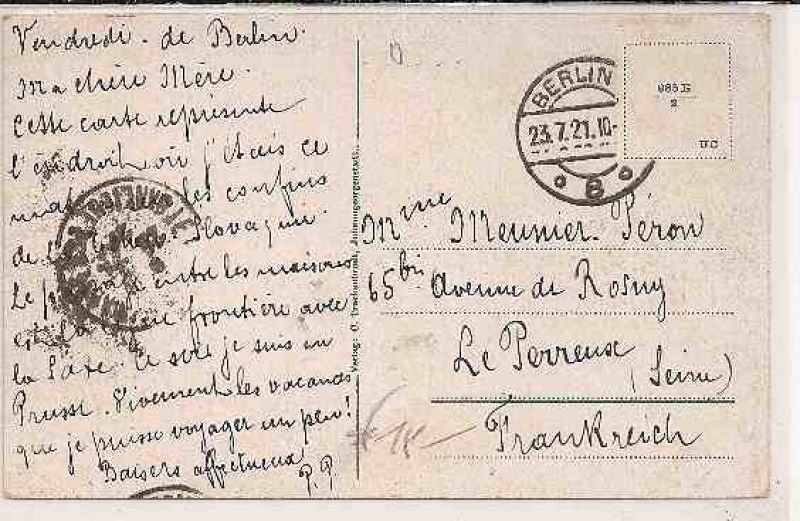 Vendredi. de Berlin.
Ma chère Mère.
Cette carte représente
l'endroit où j'étais ce
les confins
de la Slovaquie.
Le passage entre les maisons
est la frontière avec
la Saxe. Ce soir je suis en
Prusse. Vivement les vacances
que je puisse voyager un peu!
Baisers affectueux
P.P
Verlag: C. Johanngeorgenstadt.
BERLIN
23.7.21.10-
8
985 E
2
UC
Mme Meunier-Péron
65 bis Avenue de Rosny
Le Perreux
(Seine)
Frankreich